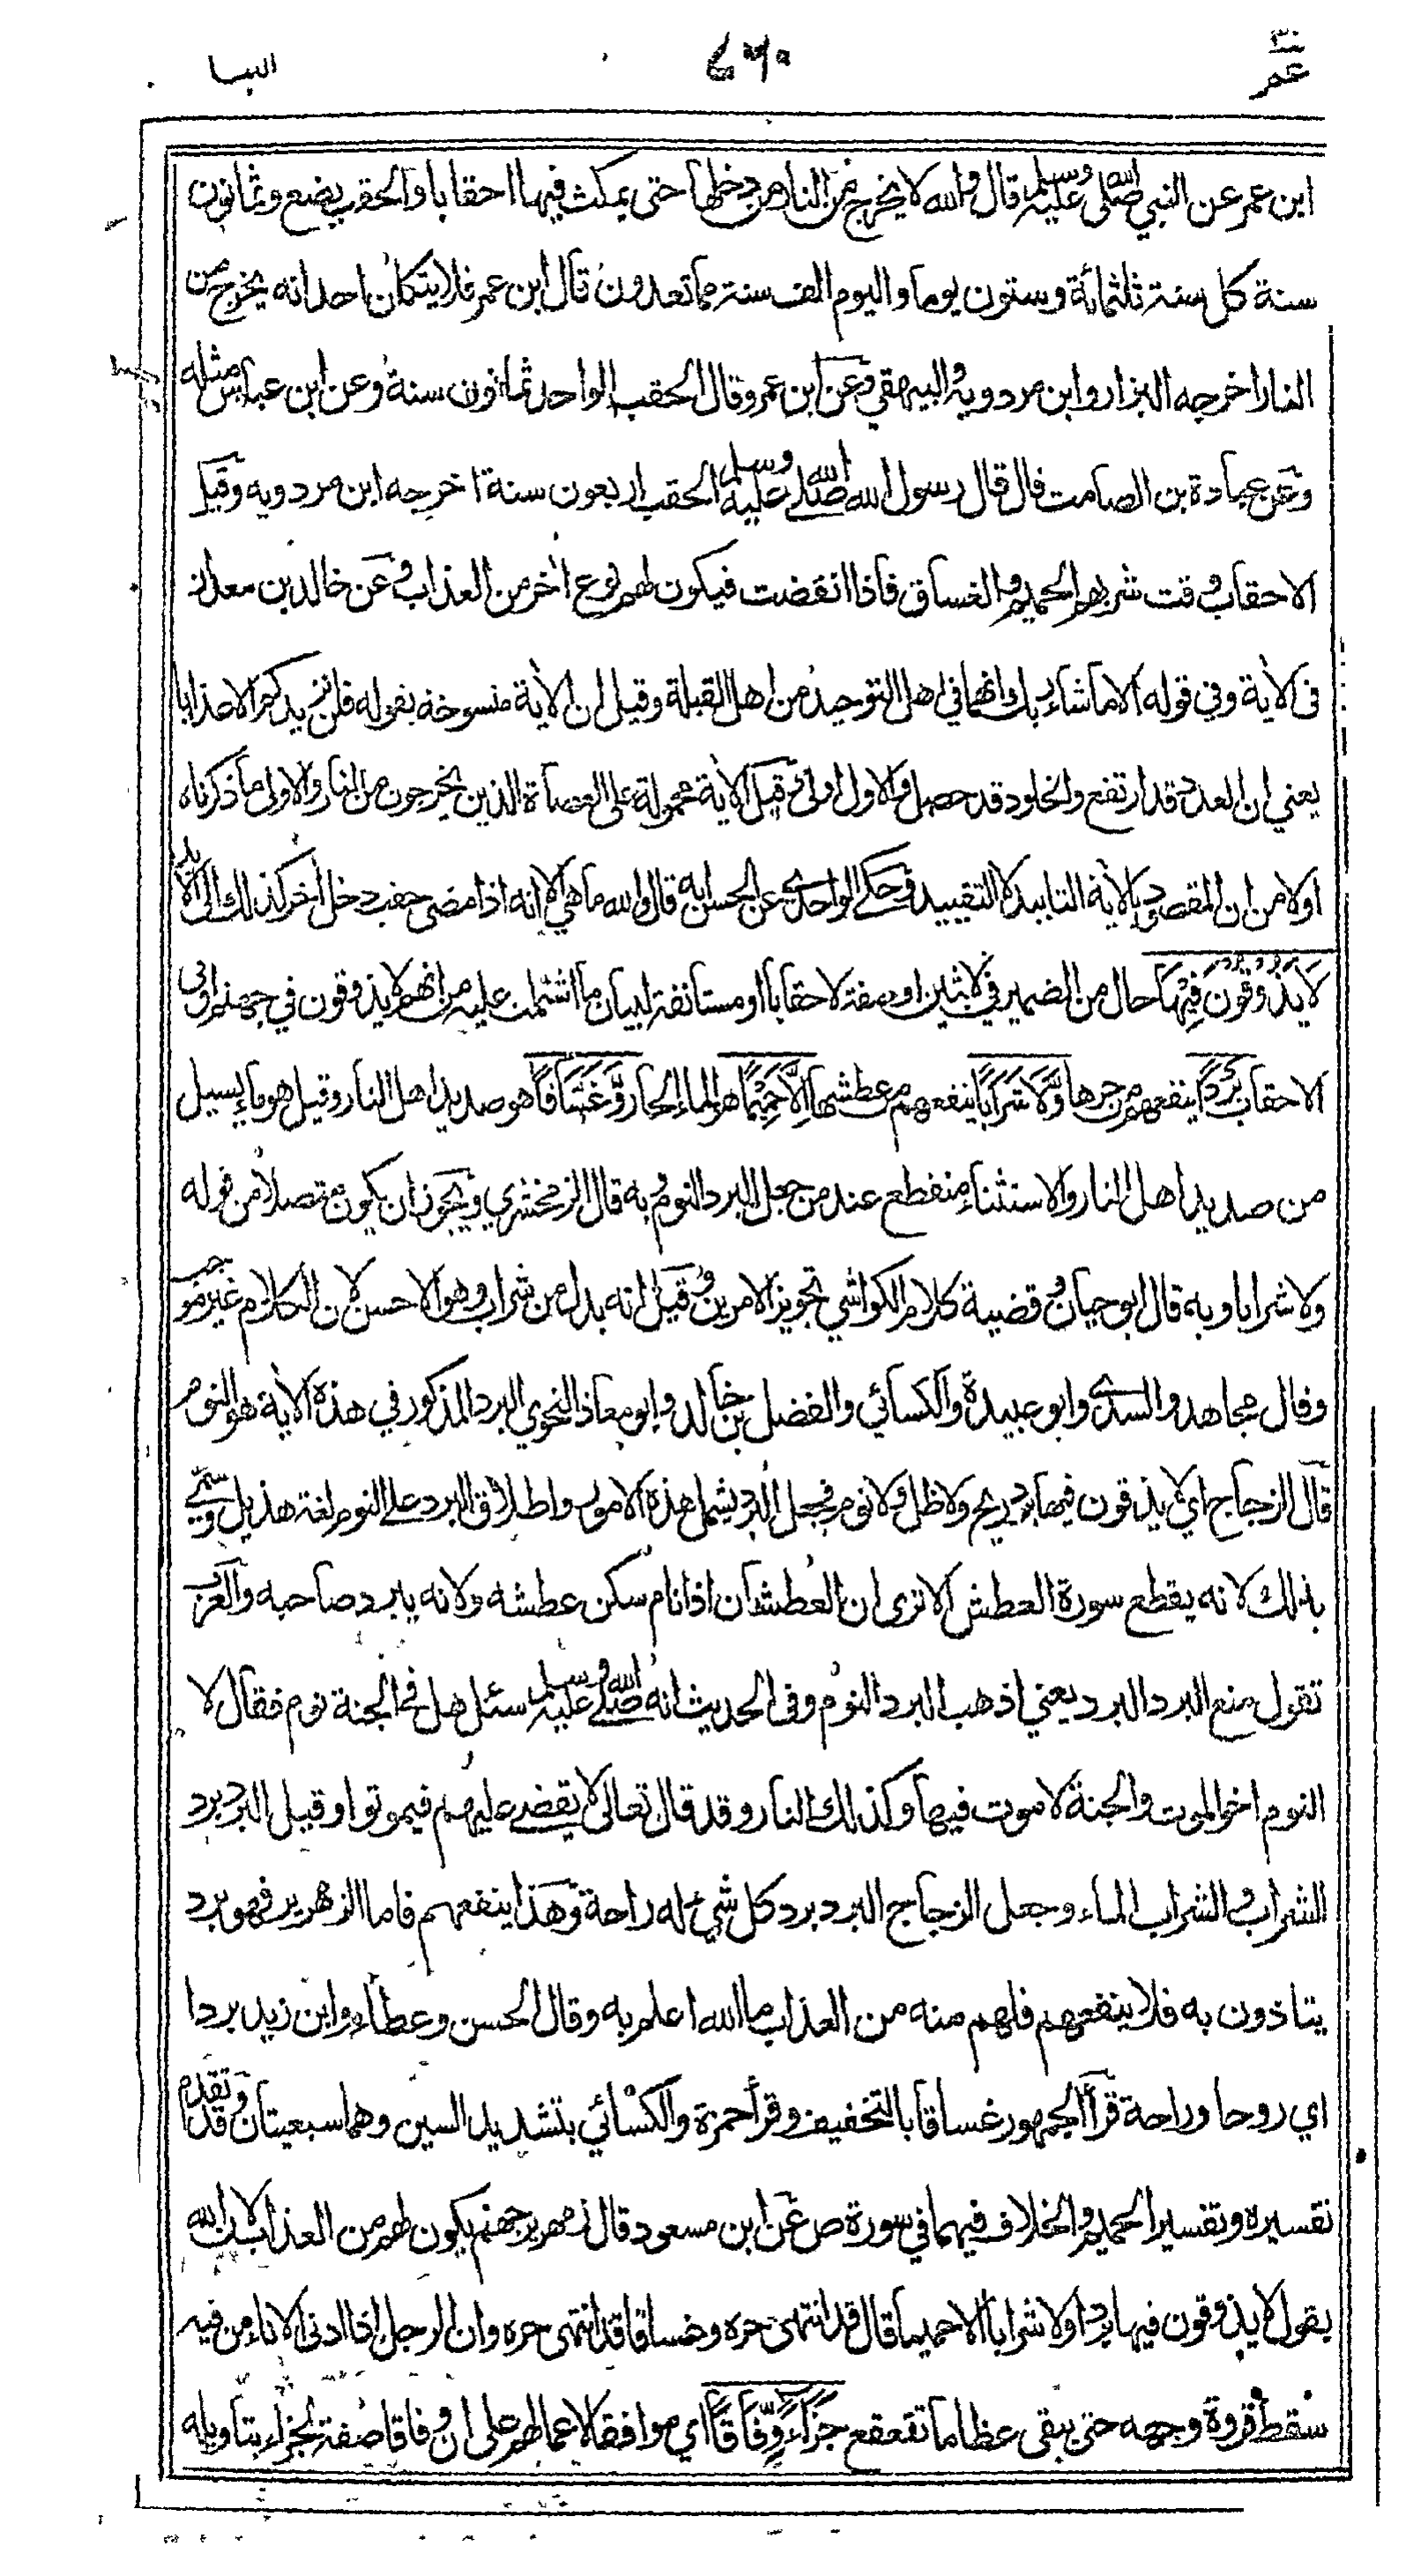 عم
النبا
ابن عمر عن النبي صلى الله عليه وسلم قال والله لا يخرج من النار من دخلها حتى يمكث فيها احقابا والحقب بضع وثمانون
سنة كل سنة ثلثمائة وستون يوما واليوم الف سنة مما تعدون قال ابن عمر فلا يتكلن احد انه يخرج من
النار اخرجه البزار وابن مردويه والبيهقي وعن ابن عمرو قال الحقب الواحد ثمانون سنة وعن ابن عباس مثله
وعن عبادة بن الصامت قال قال رسول الله صلى الله عليه وسلم الحقب اربعون سنة اخرجه ابن مردويه وقيل
الاحقاب وقت شربهم الحميم والغساق فاذا انقضت فيكون لهم نوع أخر من العذاب وعن خالد بن معدان
فى الأية وفي قوله الا ما شاء ربك انهما في اهل التوحيد من اهل القبلة وقيل ان الأية منسوخة بقوله فلن نزيدكم الا عذابا
يعني ان العدد قد ارتفع والخلود قد حصل والاول اولى وقيل الأية محمولة على العصاة الذين يخرجون من النار والاولى ما ذكرناه
اولا من ان المقصود بالأية التابيد لا التقييد وحكى الواحدي عن الحسن انه قال والله ما هي الا انه اذا مضى حقب دخل أخر كذلك الى الابد
لَا يَذُوقُونَ فِيْهَا حال من الضمير في لابثين او صفة لاحقابا او مستانفة لبيان ما اشتملت عليه من انهم لا يذوقون في جهنم او في
الاحقاب بَرْدًا ينفعهم من حرها وَّلَا شَرَابًا ينفعهم من عطشها اِلَّا حَمِيْمًا هو الماء الحار وَّغَسَّاقًا هو صديد اهل النار وقيل هو ماء يسيل
من صديد اهل النار والاستثناء منقطع عند من جعل البرد النوم وبه قال الزمخشري ويجوز ان يكون متصلا من قوله
ولا شرابا وبه قال ابو حيان وقضية كلام الكواشي تجويز الامرين وقيل انه بدل من شراب وهو الاحسن لان الكلام غير موجب
وقال مجاهد والسدي وابو عبيدة والكسائي والفضل بن خالد وابو معاذ النحوي البرد المذكور في هذه الأية هو النوم
قال الزجاج اي لا يذوقون فيها برد ريح ولا ظل ولا نوم فجعل البرد يشمل هذه الامور واطلاق البرد على النوم لغة هذيل وسمي
بذلك لانه يقطع سورة العطش الا ترى ان العطشان اذا نام سكن عطشه ولانه يبرد صاحبه والعرب
تقول منع البرد البرد يعني اذهب البرد النوم وفى الحديث انه صلى الله عليه وسلم سئل هل في الجنة نوم فقال لا
النوم اخو الموت والجنة لا موت فيها وكذلك النار وقد قال تعالى لا يقضى عليهم فيموتوا وقيل البرد برد
الشراب والشراب الماء وجعل الزجاج البرد برد كل شيء له راحة وهذا ينفعهم فاما الزهرير فهو برد
يتاذون به فلا ينفعهم فلهم منه من العذاب ما الله اعلم به وقال الحسن وعطاء وابن زيد بردا
اي روحا وراحة قرأ الجمهور غساقا بالتخفيف وقرأ حمزة والكسائي بتشديد السين وهما سبعيتان وقد تقدم
تفسيره وتفسير الحميم والخلاف فيهما في سورة ص عن ابن مسعود قال زمهرير جهنم يكون لهم من العذاب لان الله
يقول لا يذوقون فيها بردا ولا شرابا الا حميما قال قد انتهى حره وغساقا قد انتهى حره وان الرجل اذا ادنى الاناء من فيه
سقط فروة وجهه حتى يبقى عظاما تقعقع جَزَآءً وِّفَاقًا اي موافقا لاعمالهم على ان وفاقا صفة لجزاء بتاويله